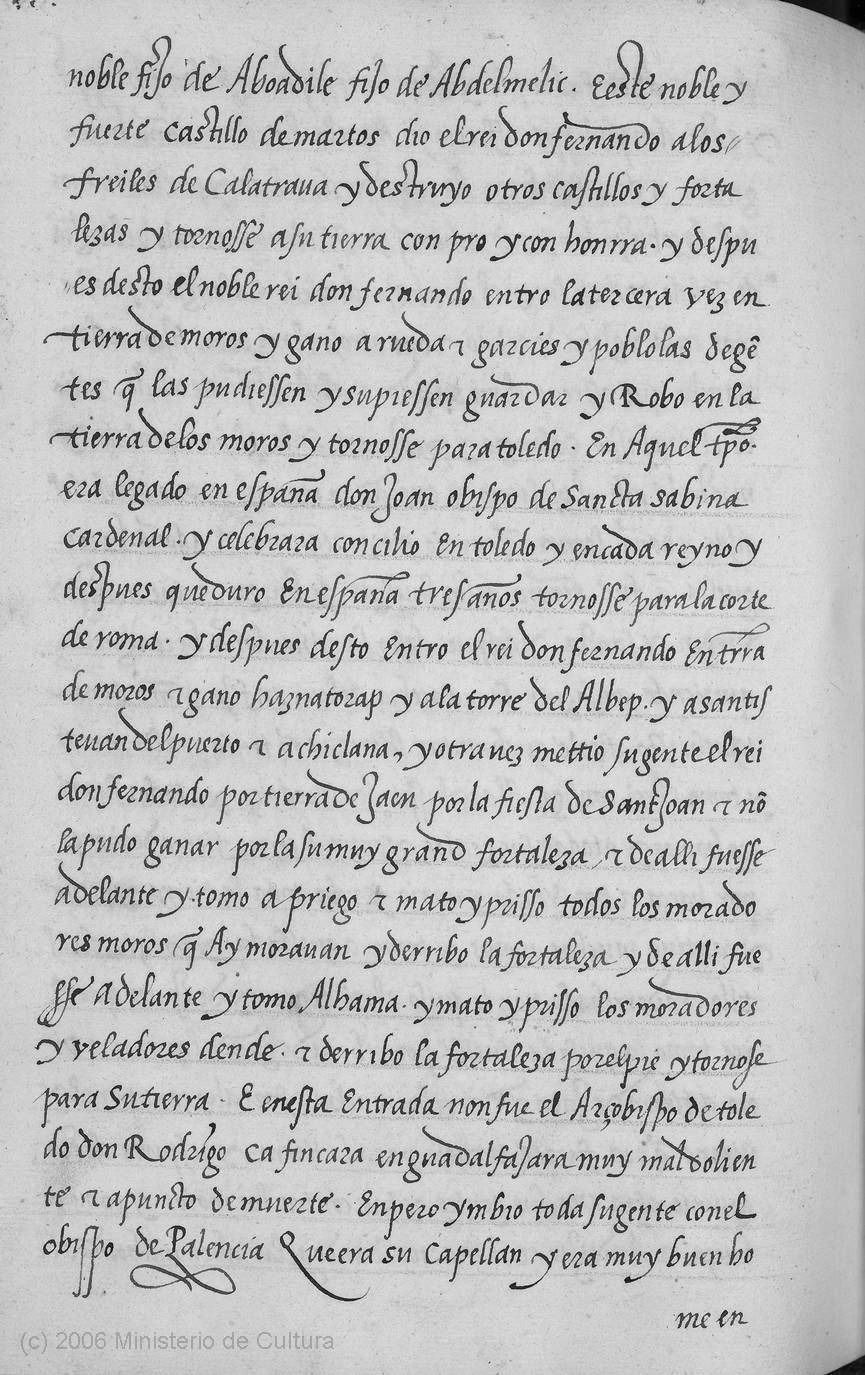 noble fijo de Aboadile fijo de Abdelmelic. E este noble y
fuerte castillo de martos dio el rei don fernando a los
freiles de Calatraua y destruyo otros castillos y forta
lezas y tornosse a su tierra con pro y con honrra. y despu
es desto el noble rei don fernando entro la tercera vez en
tierra de moros y gano a rueda ⁊ garcies y poblolas de gẽ
tes q̃ las pudiessen y supiessen guardar y Robo en la
tierra delos moros y tornosse para toledo. En Aquel tp̃o.
era legado en españa don Joan obispo de Sancta sabina
cardenal. y celebrara concilio en toledo y en cada reyno y
despues que duro En españa tres años tornosse para la corte
de roma. y despues desto Entro el rei don fernando En trr̃a
de moros ⁊ gano haznatorap y a la torre del Albep. y a santis
teuan del puerto ⁊ a chiclana, y otra vez mettio su gente el rei
don fernando por tierra de Jaen por la fiesta de Sant Joan ⁊ nõ
la pudo ganar por la su muy grand fortaleza, ⁊ de alli fuesse
adelante y tomo a priego ⁊ mato y prisso todos los morado
res moros q̃ Ay morauan y derribo la fortaleza y de alli fue
sse Adelante y tomo Alhama. y mato y prisso los moradores
y veladores dende. ⁊ derribo la fortaleza por el pie y tornose
para Su tierra. E en esta Entrada non fue el Arçobispo de tole
do don Rodrigo ca fincara en guadalfajara muy mal dolien
te ⁊ a puncto de muerte. Enpero ymbio toda su gente con el
obispo de Palencia Que era su Capellan y era muy buen ho
me en
(c) 2006 Ministerio de Cultura